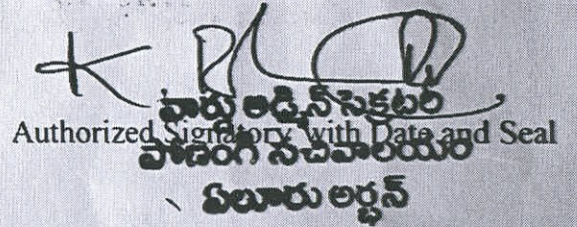 వార్డు అడ్మిన్ సెక్రటరీ
Authorized Signatory with Date and Seal
పోణంగి సచివాలయం
ఏలూరు అర్బన్